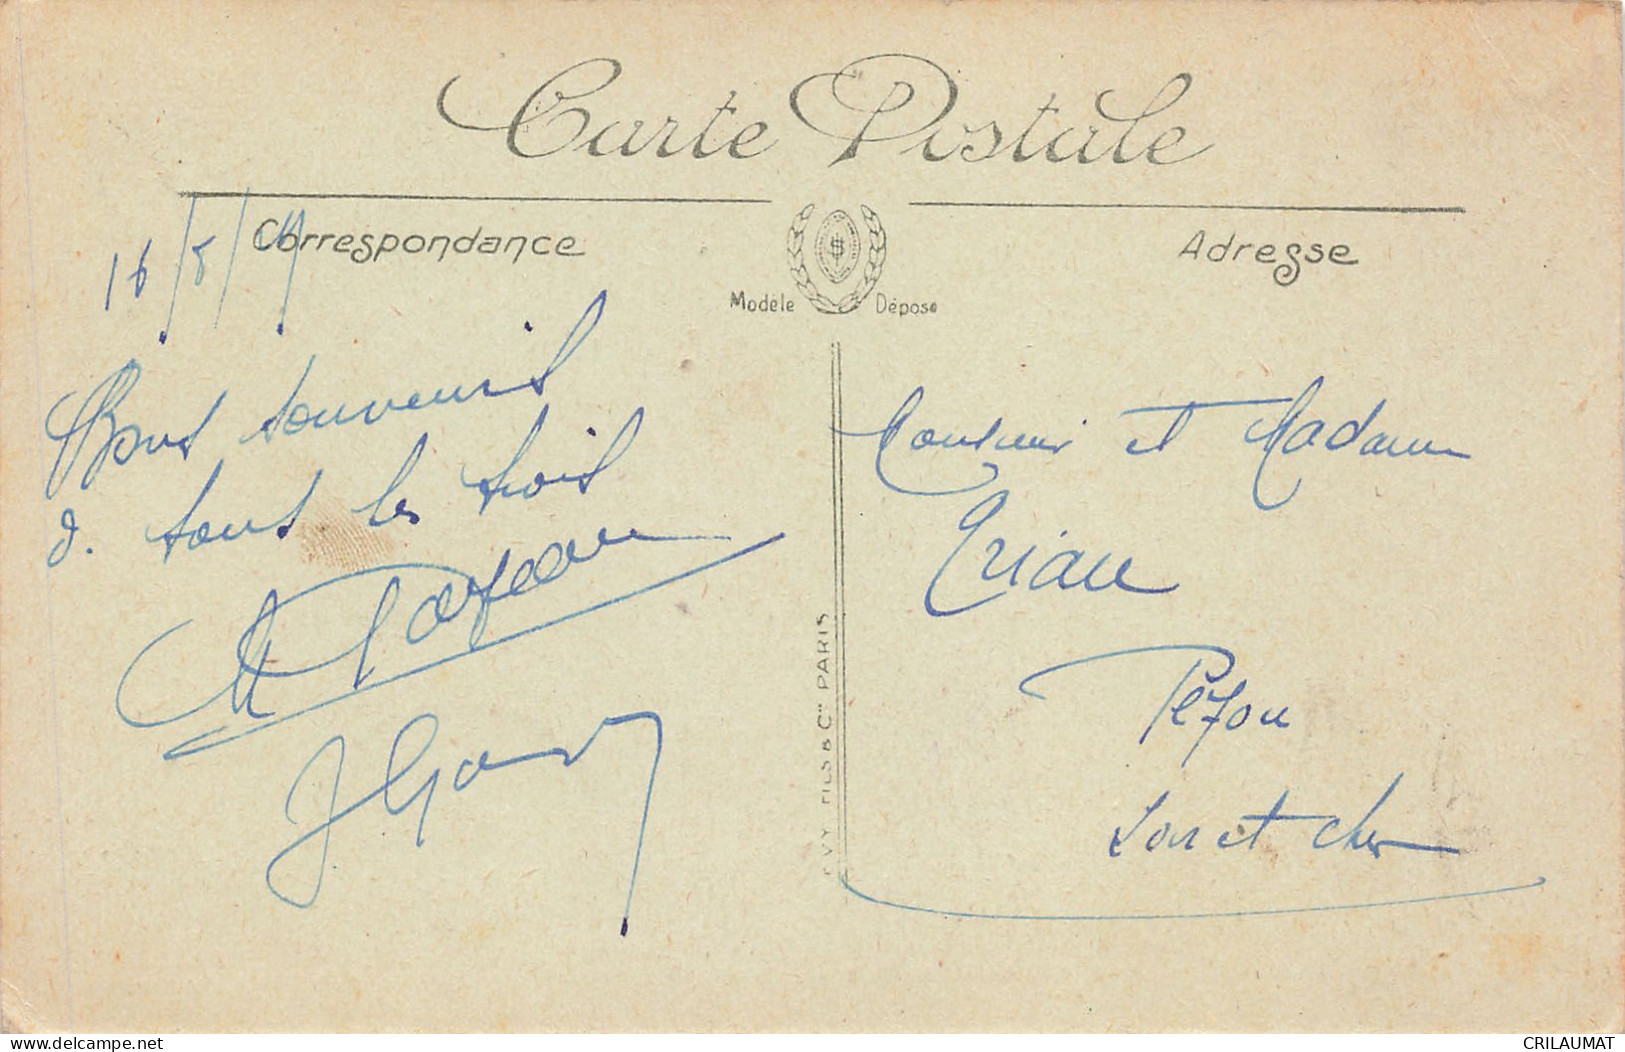 Carte Postale
Correspondance
Adresse
Modèle Déposé
16/8/
Bons souvenirs
d. tous les trois
J
Monsieur et Madame
Triau
Pezou
Loir et cher
LEVY FILS & Cie PARIS
delcampe.net
CRILAUMAT